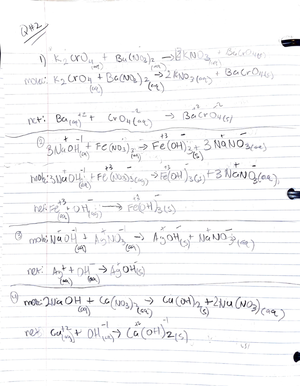 Q#2
1) K2CrO4(aq) + Ba(NO3)2(aq) → 2KNO3(aq) + BaCrO4(s)
mole: K2CrO4(aq) + Ba(NO3)2(aq) → 2KNO3(aq) + BaCrO4(s)
net: Ba+2(aq) + CrO4-2(aq) → BaCrO4(s)
② 3NaOH(aq) + Fe(NO3)2(aq) → Fe(OH)2(s) + 3NaNO3(aq)
mole: 3NaOH(aq) + Fe(NO3)3(aq) → Fe(OH)3(s) + 3NaNO3(aq)
net: Fe+3(aq) + OH-1(aq) → Fe(OH)3(s)
③ mole: NaOH(aq) + AgNO3(aq) → AgOH(s) + NaNO3(aq)
net: Ag+(aq) + OH-(aq) → AgOH(s)
④ mole: 2NaOH(aq) + Ca(NO3)2(aq) → Ca(OH)2(s) + 2Na(NO3)(aq)
net: Ca+2(aq) + OH-1(aq) → Ca(OH)2(s)